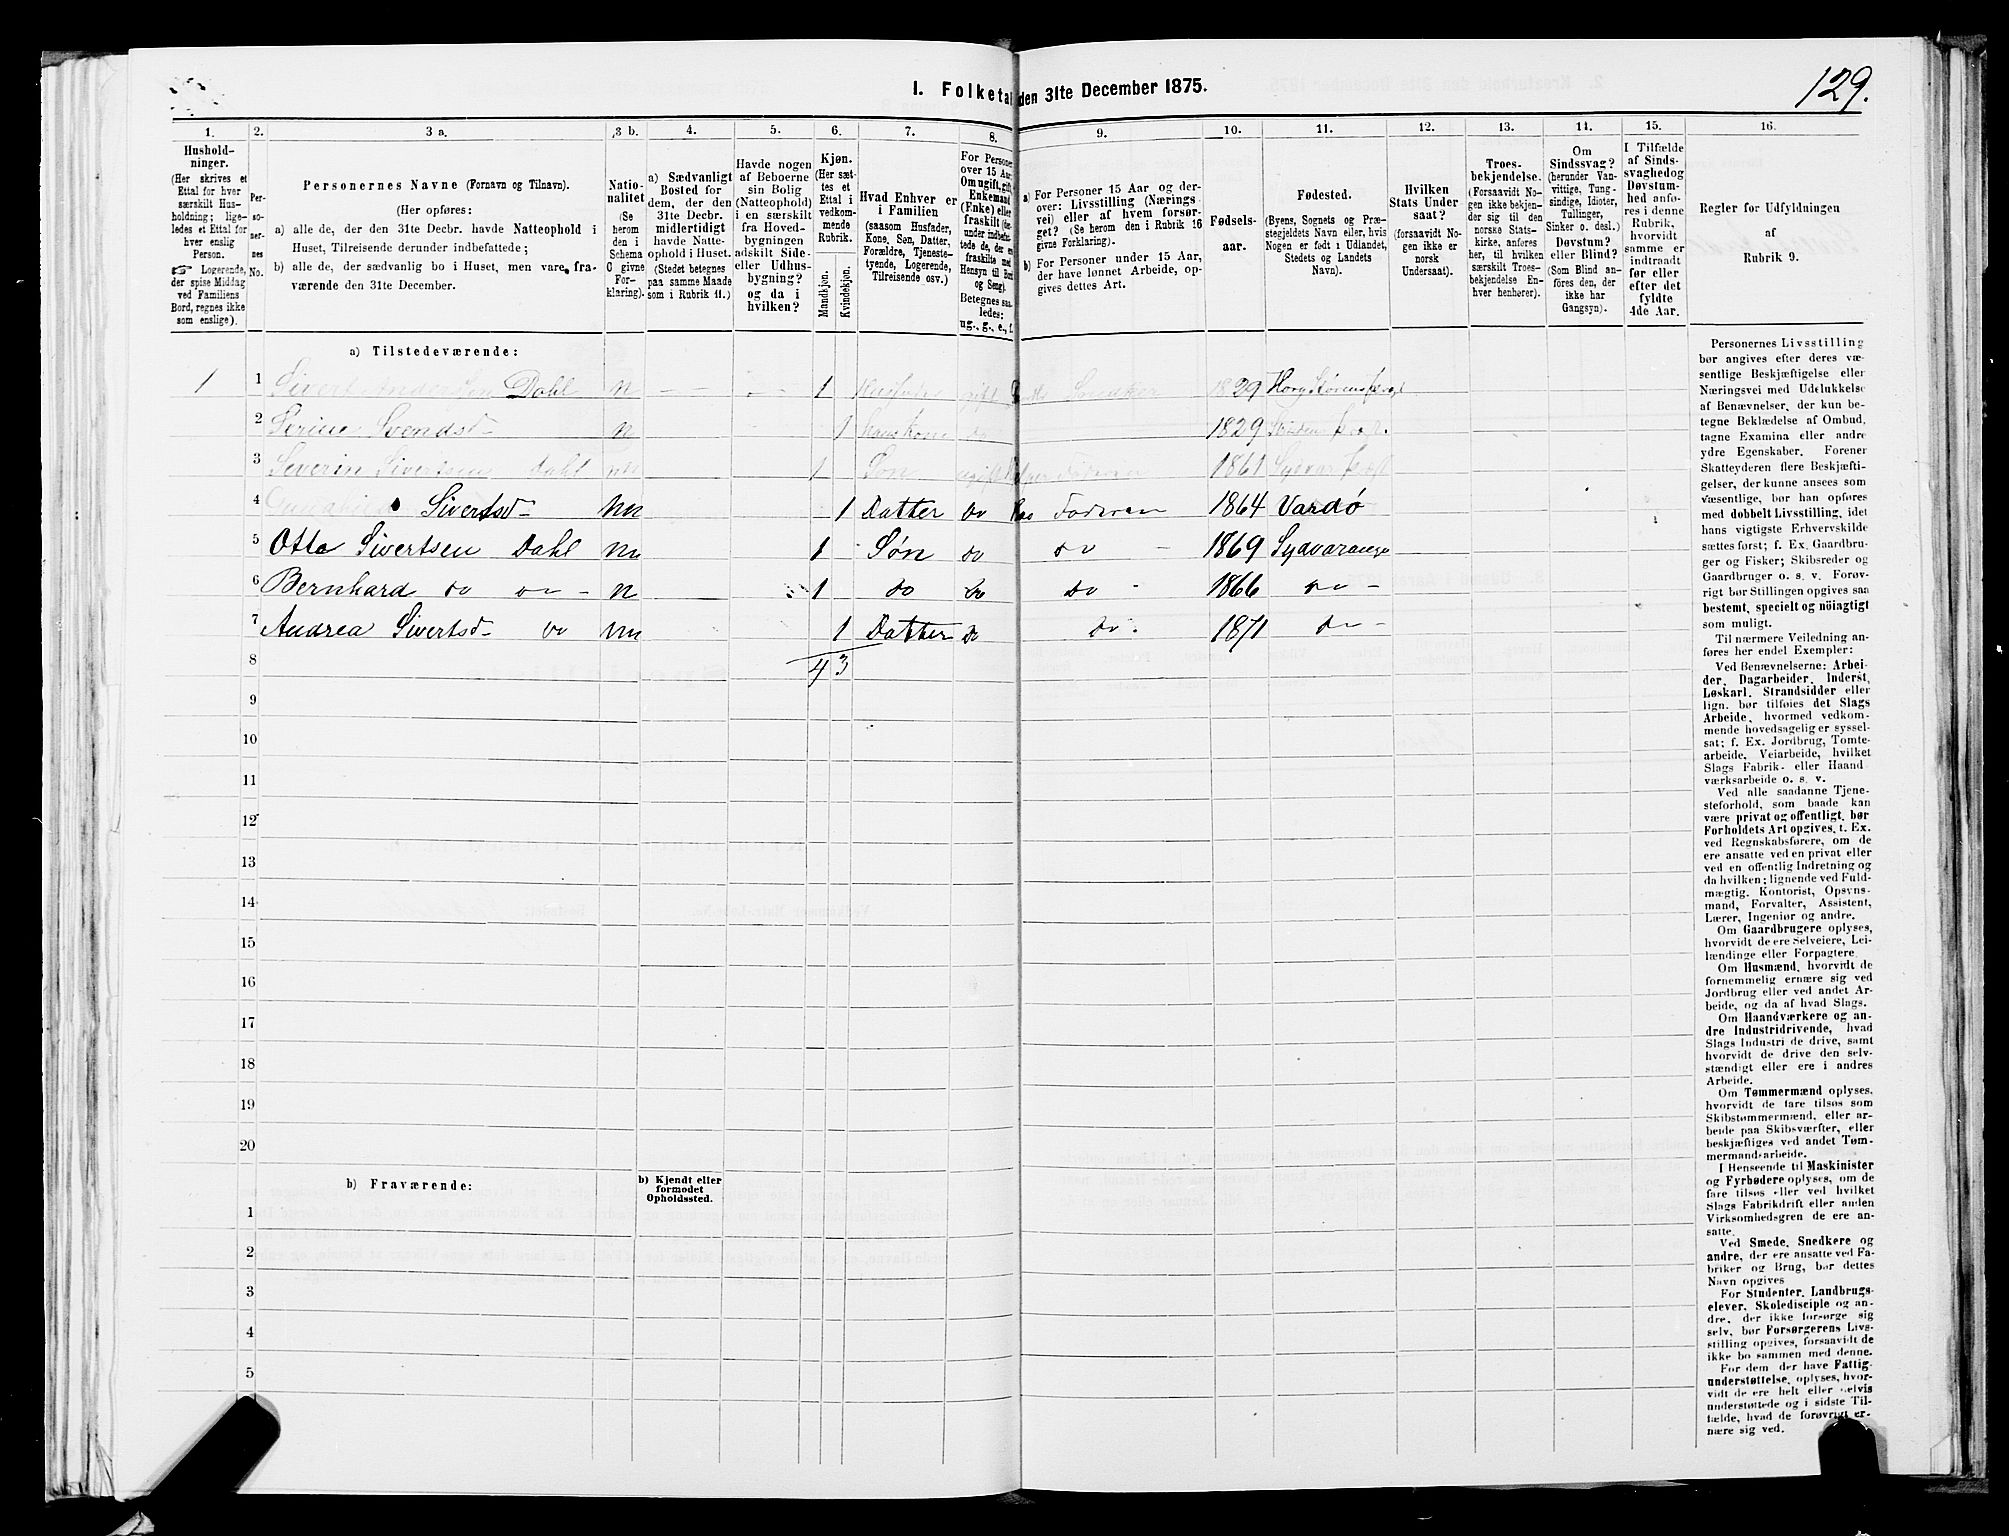 129.
I. Folketal den 31te December 1875.
1. 2. 3 a. 3 b. 4. 5. 6. 7. 8. 9. 10. 11. 12. 13. 14. 15. 16.
Hushold-
ninger.
(Her skrives et
Ettal for hver
særskilt Hus-
holdning; lige-
ledes et Ettal for
hver enslig
Person.
☞ Logerende,
der spise Middag
ved Familiens
Bord, regnes ikke
som enslige).
Per-
so-
ner-
nes
No.
Personernes Navne (Fornavn og Tilnavn).
(Her opføres:
a) alle de, der den 31te Decbr. havde Natteophold i
Huset, Tilreisende derunder indbefattede;
b) alle de, der sædvanlig bo i Huset, men vare fra-
værende den 31te December.
Natio-
nalitet
(Se
herom
den i
Schema
C givne
For-
klaring).
a) Sædvanligt
Bosted for
dem, der den
31te Decbr.
midlertidigt
havde Natte-
ophold i Huset.
(Stedet betegnes
paa samme Maade
som i Rubrik 11.)
Havde nogen
af Beboerne
sin Bolig
(Natteophold)
i en særskilt
fra Hoved-
bygningen
adskilt Side-
eller Udhus-
bygning?
og da i
hvilken?
Kjøn.
(Her sæt-
tes et
Ettal i
vedkom-
mende
Rubrik.
Mandkjøn.
Kvindekjøn.
Hvad Enhver er
i Familien
(saasom Husfader,
Kone, Søn, Datter,
Forældre, Tjeneste-
tyende, Logerende,
Tilreisende osv.)
For Personer
over 15 Aar:
Om ugift, gift,
Enkemand
(Enke) eller
fraskilt (der-
under indbefat-
tede de, der ere
fraskilte med
Hensyn til Bord
og Seng).
Betegnes saa-
ledes:
ug., g., e., f.
a) For Personer 15 Aar og der-
over: Livsstilling (Nærings-
vei) eller af hvem forsør-
get? (Se herom den i Rubrik 16
givne Forklaring).
b) For Personer under 15 Aar,
der have lønnet Arbeide, op-
gives dettes Art.
Fødsels-
aar.
Fødested.
(Byens, Sognets og Præ-
stegjeldets Navn eller, hvis
Nogen er født i Udlandet,
Stedets og Landets
Navn).
Hvilken
Stats Under
saat?
(forsaavidt No-
gen ikke er
norsk
Undersaat).
Troes-
bekjendelse.
(Forsaavidt No-
gen ikke bekjen-
der sig til den
norske Stats-
kirke, anføres
her, til hvilken
særskilt Troes-
bekjendelse En-
hver henhører).
Om
Sindssvag?
(herunder Van-
vittige, Tung-
sindige, Idioter,
Tullinger,
Sinker o. desl.)
Døvstum?
eller Blind?
(Som Blind an-
føres den, der
ikke har
Gangsyn).
I Tilfælde
af Sinds-
svaghed og
Døvstum-
hed anfø-
res i denne
Rubrik,
hvorvidt
samme er
indtraadt
før eller
efter det
fyldte
4de Aar.
Regler for Udfyldningen
af
Rubrik 9.
a) Tilstedeværende:
1 1 Sivert Andersen Dahl n — — - - 1 Husfader gift 1829
2 Serine Svendsd- n 1 hans Kone do 1829
3 Severin Sivertsen Dahl nn 1 Søn ugift Faderen 1861
4 Sivertsd- nn 1 Datter do Faderen 1864 Vardø
5 Otto Sivertsen Dahl nn 1 Søn do do - 1869 Sydvaranger
6 Bernhard do do - n 1 do do do - 1866 do -
7 Andrea Sivertsd- do nn 1 Datter do do . 1871 do -
8 4 3
9
10
11
12
13
14
15
16
17
18
19
20
b) Fraværende:
b) Kjendt eller
formodet
Opholdssted.
1
2
3
4
5
Personernes Livsstilling
bør angives efter deres væ-
sentlige Beskjæftigelse eller
Næringsvei med Udelukkelse
af Benævnelser, der kun be-
tegne Beklædelse af Ombud,
tagne Examina eller andre
ydre Egenskaber. Forener
Skatteyderen flere Beskjæfti-
gelser, der kunne ansees som
væsentlige, bør han opføres
med dobbelt Livsstilling, idet
hans vigtigste Erhvervskilde
sættes først; f. Ex. Gaardbru-
ger og Fisker; Skibsreder og
Gaardbruger o. s. v. Forøv-
rigt bør Stillingen opgives saa
bestemt, specielt og nöiagtigt
som muligt.
Til nærmere Veiledning an-
føres her endel Exempler:
Ved Benævnelserne: Arbei-
der, Dagarbeider, Inderst,
Løskarl, Strandsidder eller
lign. bør tilføies det Slags
Arbeide, hvormed vedkom-
mende hovedsagelig er syssel-
sat; f. Ex. Jordbrug, Tomte-
arbeide, Veiarbeide, hvilket
Slags Fabrik- eller Haand
værksarbeide o. s. v.
Ved alle saadanne Tjene-
steforhold, som baade kan
være privat og offentligt, bør
Forholdets Art opgives, t. Ex.
ved Regnskabsførere, om de
ere ansatte ved en privat eller
ved en offentlig Indretning og
da hvilken; lignende ved Fuld-
mægtig, Kontorist, Opsyns-
mand, Forvalter, Assistent,
Lærer, Ingeniør og andre.
Om Gaardbrugere oplyses,
hvorvidt de ere Selveiere, Lei-
lændinge eller Forpagtere.
Om Husmænd, hvorvidt de
fornemmelig ernære sig ved
Jordbrug eller ved andet Ar-
beide, og da af hvad Slags.
Om Haandværkere og an-
dre Industridrivende, hvad
Slags Industri de drive, samt
hvorvidt de drive den selv-
stændigt eller ere i andres
Arbeide.
Om Tømmermænd oplyses,
hvorvidt de fare tilsøs som
Skibstømmermænd, eller ar-
beide paa Skibsværfter, eller
beskjæftiges ved andet Tøm-
mermandsarbeide.
I Henseende til Maskinister
og Fyrbødere oplyses, om de
fare tilsøs eller ved hvilket
Slags Fabrikdrift eller anden
Virksomhedsgren de ere an-
satte.
Ved Smede, Snedkere og
andre, der ere ansatte ved Fa-
briker og Brug, bør dettes
Navn opgives
For Studenter, Landbrugs-
elever, Skoledisciple og an-
dre, der ikke forsørge sig
selv, bør Forsørgerens Livs-
stilling opgives, forsaavidt de
ikke bo sammen med denne.
For dem, der have Fattig-
understøttelse, oplyses, hvor-
vidt de ere helt eller delvis
understøttede og i sidste Til-
fælde, hvad de forøvrigt er-
nære sig ved.